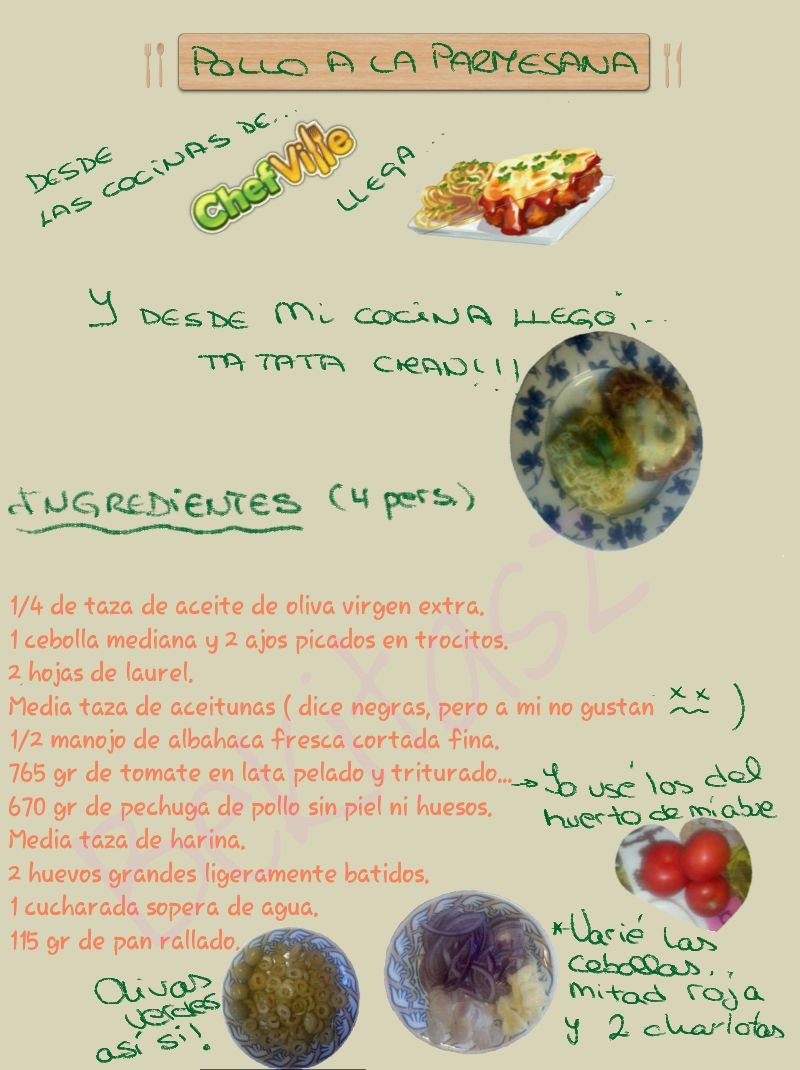 POLLO A LA PARMESANA
DESDE
LAS COCINAS DE...
ChefVille
LLEGA...
Y DESDE MI COCINA LLEGÓ...
TA TATA CHAN!!!
INGREDIENTES (4 pers.)
1/4 de taza de aceite de oliva virgen extra.
1 cebolla mediana y 2 ajos picados en trocitos.
2 hojas de laurel.
Media taza de aceitunas ( dice negras, pero a mi no gustan )
1/2 manojo de albahaca fresca cortada fina.
765 gr de tomate en lata pelado y triturado...
→ Yo usé los del
huerto de mi abue
670 gr de pechuga de pollo sin piel ni huesos.
Media taza de harina.
2 huevos grandes ligeramente batidos.
1 cucharada sopera de agua.
115 gr de pan rallado.
Olivas
verdes
así si!
*Varié las
cebollas..
mitad roja
y 2 charlotas
Bekitasz